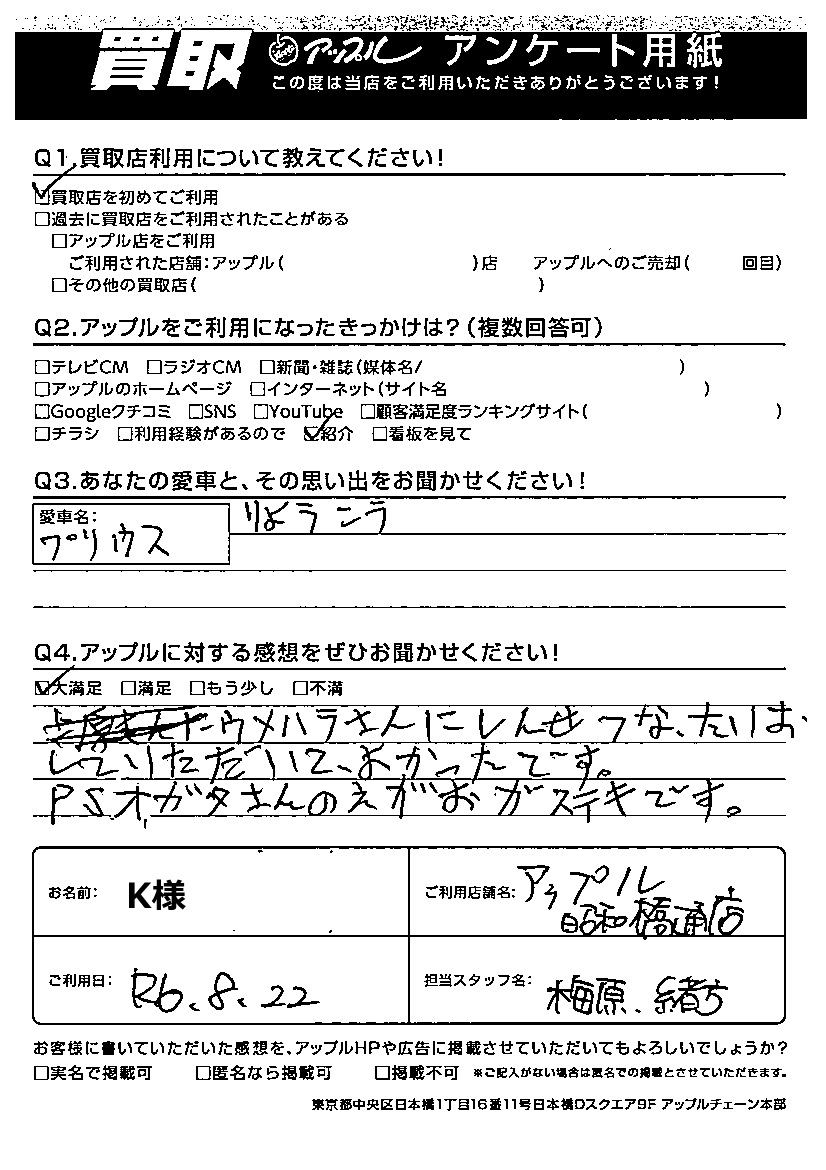 買取 アップル アンケート用紙
この度は当店をご利用いただきありがとうございます!
Q1.買取店利用について教えてください!
☑買取店を初めてご利用
□過去に買取店をご利用されたことがある
□アップル店をご利用
ご利用された店舗:アップル( )店 アップルへのご売却( 回目)
□その他の買取店( )
Q2.アップルをご利用になったきっかけは?(複数回答可)
□テレビCM □ラジオCM □新聞・雑誌(媒体名/ )
□アップルのホームページ □インターネット(サイト名 )
□Googleクチコミ □SNS □YouTube □顧客満足度ランキングサイト( )
□チラシ □利用経験があるので ☑紹介 □看板を見て
Q3.あなたの愛車と、その思い出をお聞かせください!
愛車名:
プリウス
りようこう
Q4.アップルに対する感想をぜひお聞かせください!
☑大満足 □満足 □もう少し □不満
ウメハラさんにしんせつな、たいお、
していただいて、よかったです。
PSオガタさんのえがおがステキです。
お名前: K様 ご利用店舗名: アップル
昭和橋通店
ご利用日: R6.8.22 担当スタッフ名: 梅原、緒方
お客様に書いていただいた感想を、アップルHPや広告に掲載させていただいてもよろしいでしょうか?
□実名で掲載可 □匿名なら掲載可 □掲載不可 ※ご記入がない場合は匿名での掲載とさせていただきます。
東京都中央区日本橋1丁目16番11号日本橋Dスクエア9F アップルチェーン本部